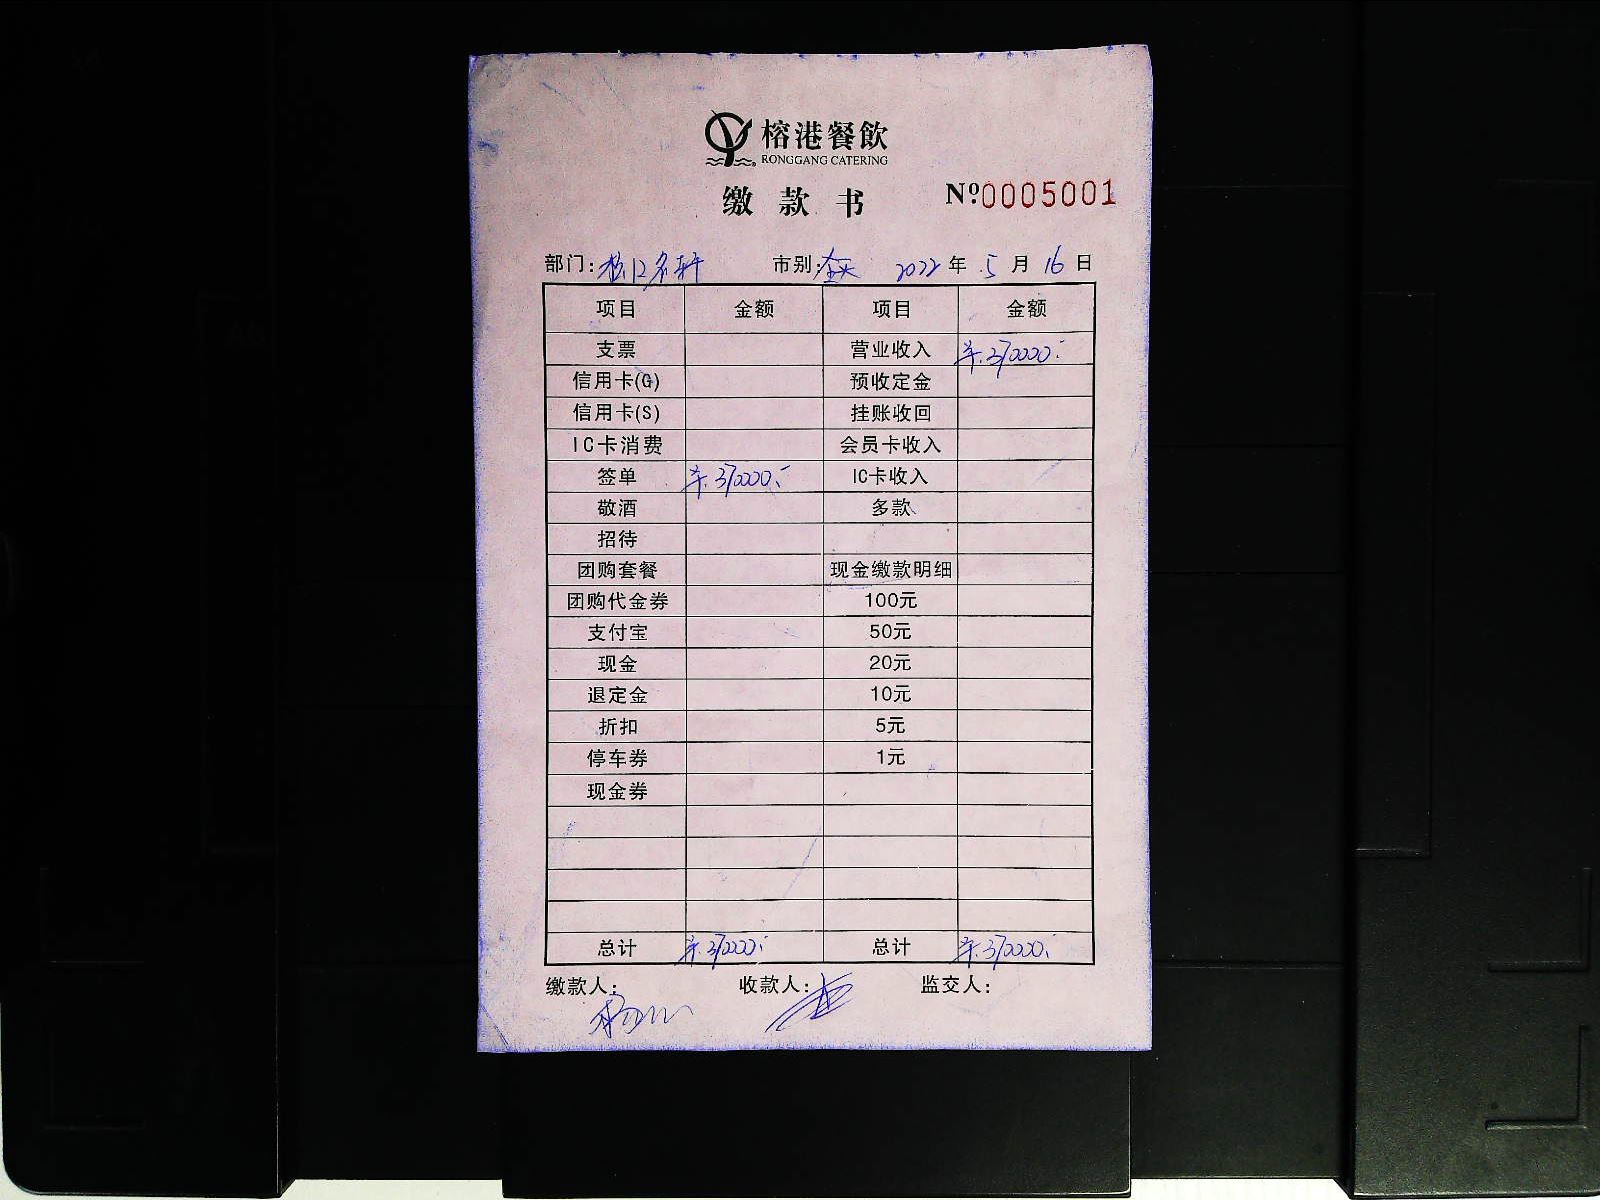 榕港餐飲
RONGGANG CATERING
缴款书 Nº0005001
部门: 市别:全天 2022年5月16日
项目 金额 项目 金额
支票 营业收入 ¥:370000:-
信用卡(G) 预收定金
信用卡(S) 挂账收回
IC卡消费 会员卡收入
签单 ¥:370000:- IC卡收入
敬酒 多款
招待
团购套餐 现金缴款明细
团购代金券 100元
支付宝 50元
现金 20元
退定金 10元
折扣 5元
停车券 1元
现金券
总计 ¥:370000:- 总计 ¥:370000:-
缴款人: 收款人: 监交人: